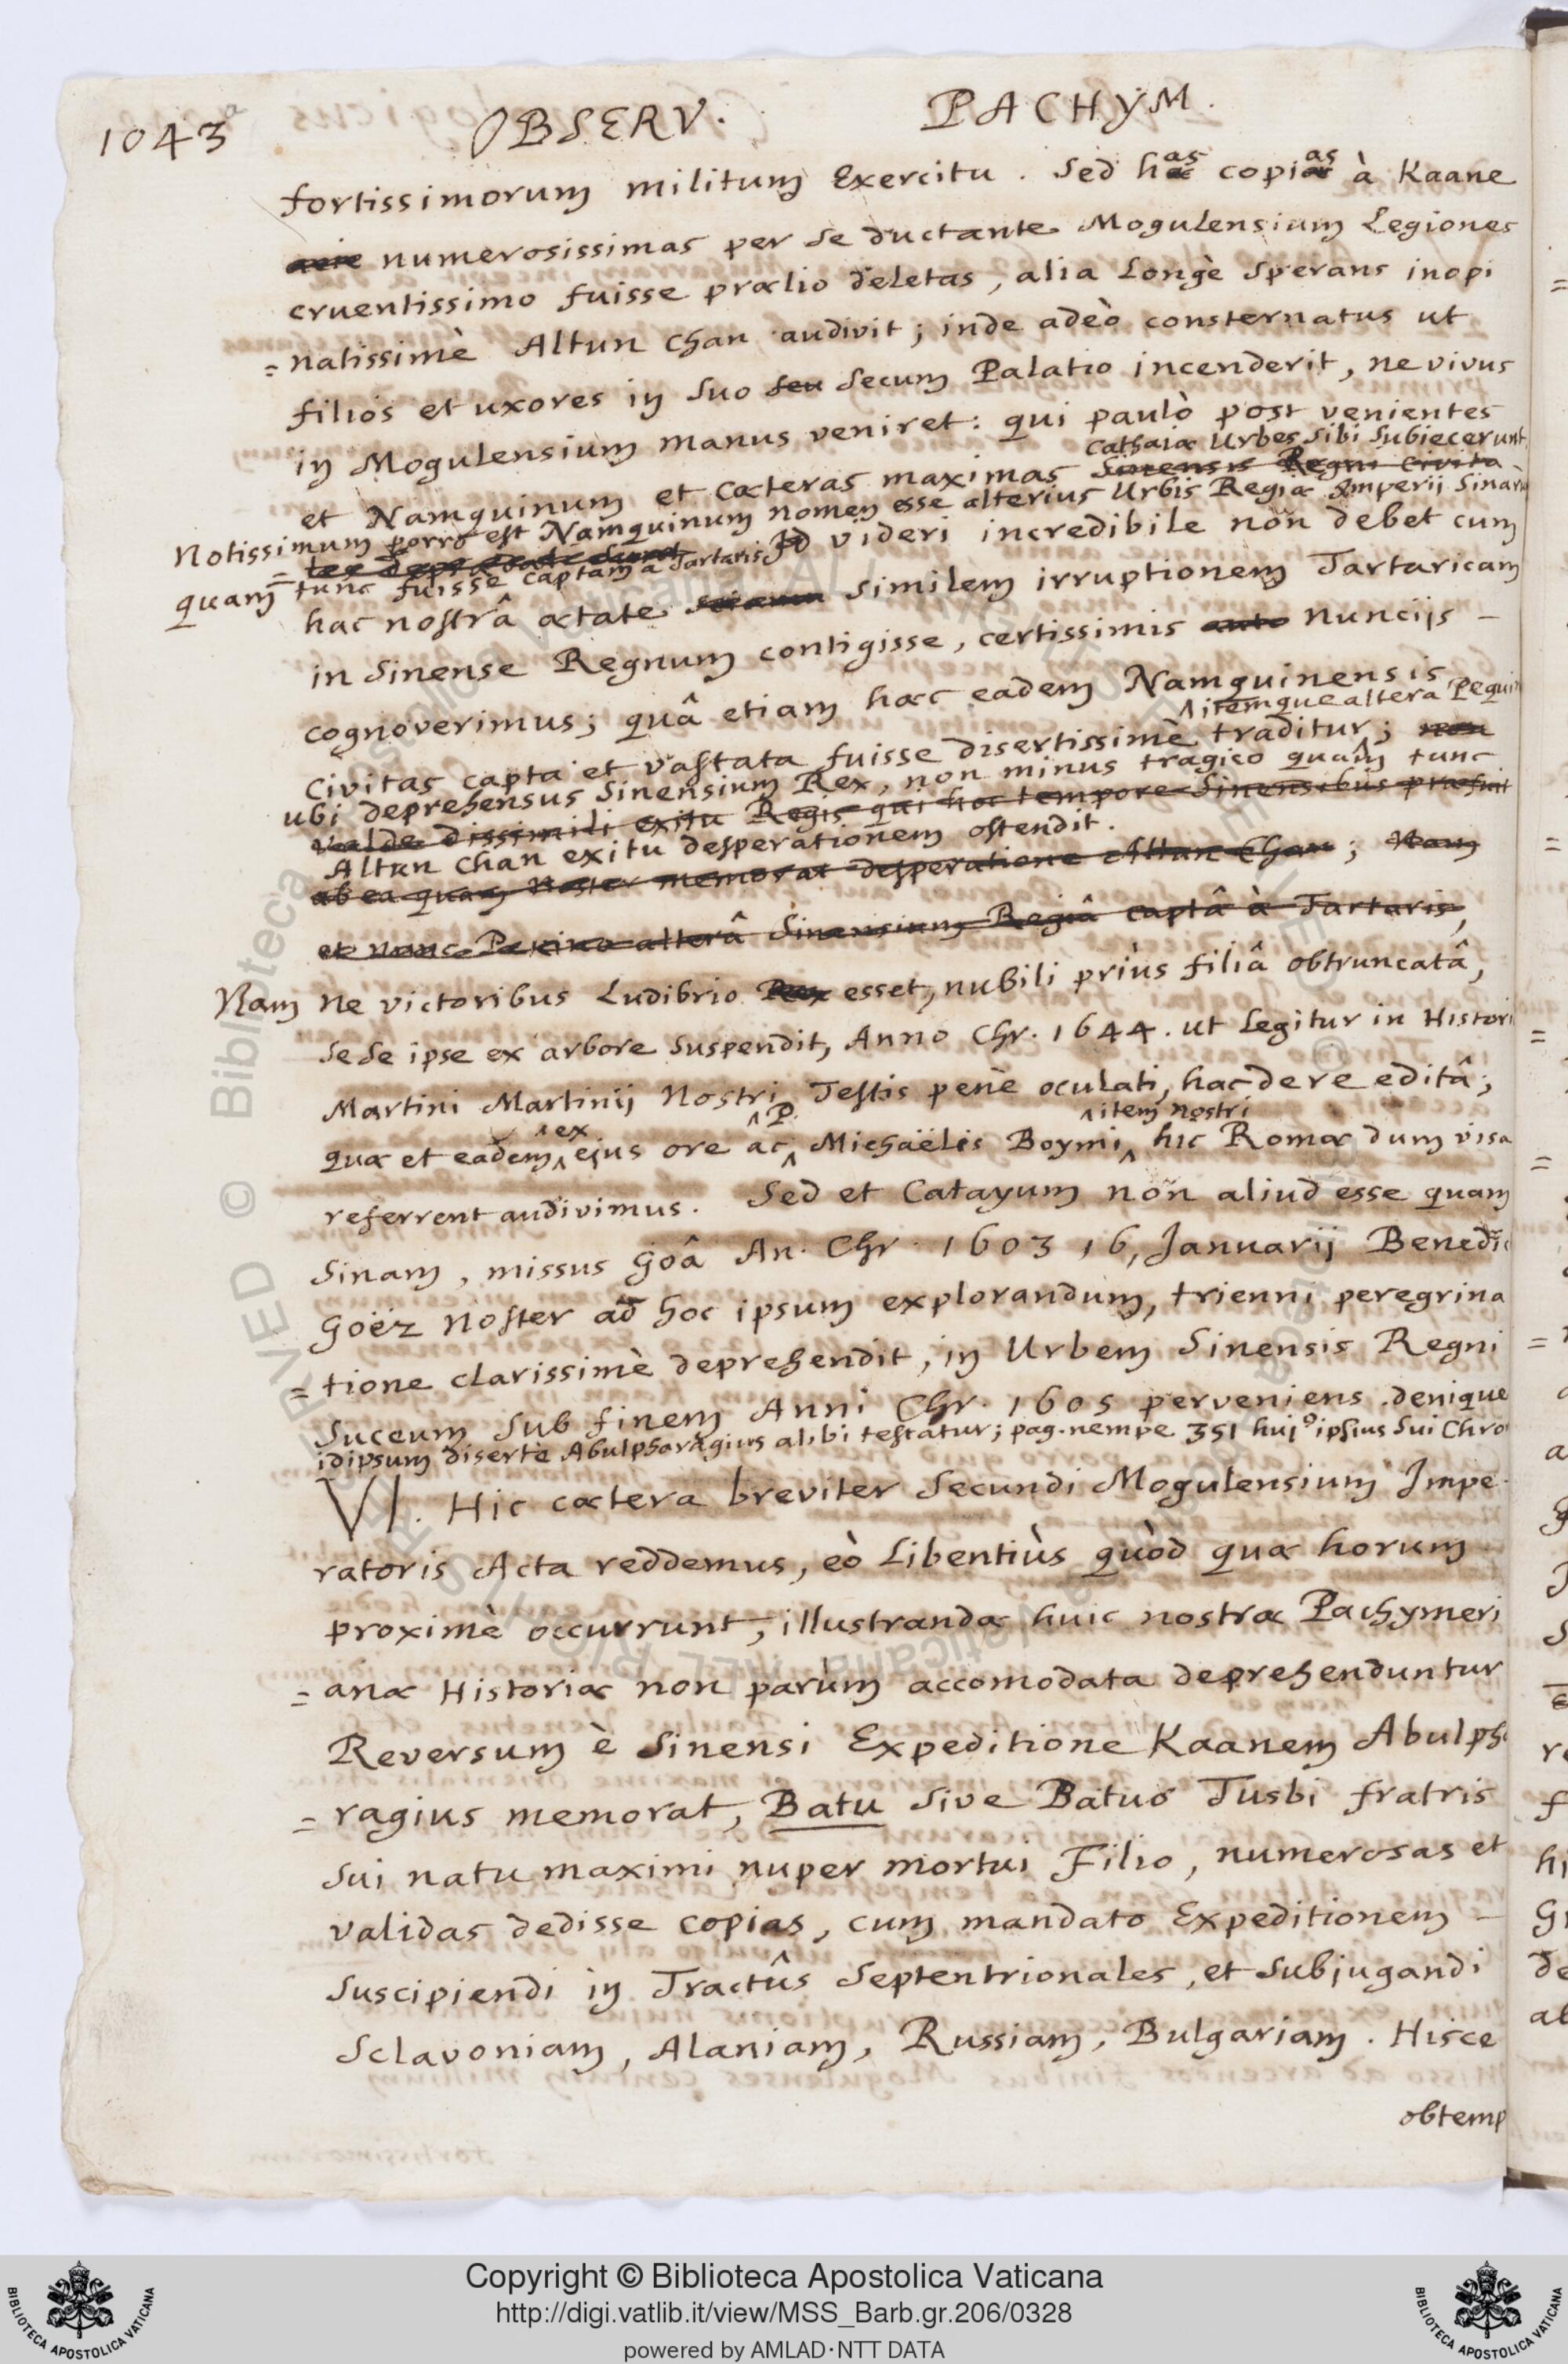 1043a OBSERV. PACHYM.
fortissimorum militum Exercitu. Sed has copias à Kaane
numerosissimas per se ductante Mogulensium Legiones
cruentissimo fuisse prælio deletas, alia Longè Sperans inopi
= natissimè Altun Chan audivit; inde adeò consternatus ut
filios et uxores in Suo seu Secum Palatio incenderit, ne vivus
in Mogulensium manus veniret: qui paulò post venientes
Cathaiæ Urbes Sibi Subiecerunt.
et Namquinum et cæteras maximas Sinensis Regni Civita
Notissimum porro est Namquinum nomen esse alterius Urbis Regiæ Imperii Sinarū
= tes deprædatæ sunt. Id videri incredibile non debet cum
quam tunc fuisse captam a Tartaris
hac nostrâ ætate similem irruptionem Tartaricam
in Sinense Regnum contigisse, certissimis nuncijs -
cognoverimus; quâ etiam hæc eadem Namquinensis
itemque altera Pequin
Civitas capta et vastata fuisse disertissimè traditur; non
ubi deprehensus Sinensium Rex, non minus tragico quâm tunc
valde dissimili exitu Regis qui hoc tempore Sinensibus præfuit
Altun Chan exitu desperationem ostendit.
ab ea quam Noster memorat desperatione Altun Chan; Nam
et nunc Pekino alterâ Sinensium Regiâ captâ à Tartaris,
Nam ne victoribus Ludibrio Rex esset, nubili priùs filiâ obtruncatâ,
Se Se ipse ex arbore Suspendit, Anno Chr. 1644. ut Legitur in Histori
Martini Martinij Nostri, Testis penè oculati, hac de re editâ;
ex P. item nostri
quæ et eadem ejus ore ac Michaëlis Boymi hic Romæ dum visa
referrent audivimus. Sed et Catayum non aliud esse quam
Sinam, missus Goâ An. Chr. 1603 16, Januarij Benedic
Goëz Noster ad hoc ipsum explorandum, trienni peregrina
= tione clarissimè deprehendit, in Urbem Sinensis Regni
Suceum Sub finem Anni Chr. 1605 perveniens. denique
idipsum disertè Abulpharagius alibi testatur; pag. nempe 351 huj9 ipsius Sui Chro
VI. Hic cætera breviter Secundi Mogulensium Impe
ratoris Acta reddemus, eò Libentiùs quòd quæ horum
proximè occurrunt, illustrandæ huic nostræ Pachymeri
= anæ Historiæ non parùm accomodata deprehenduntur
Reversum è Sinensi Expeditione Kaanem Abulpha
= ragius memorat, Batu Sive Batuo Tusbi fratris
Sui natu maximi nuper mortui Filio, numerosas et
validas dedisse copias, cum mandato Expeditionem -
Suscipiendi in Tractûs Septentrionales, et Subjugandi
Sclavoniam, Alaniam, Russiam, Bulgariam. Hisce
obtemp
Copyright © Biblioteca Apostolica Vaticana
http://digi.vatlib.it/view/MSS_Barb.gr.206/0328
powered by AMLAD·NTT DATA
BIBLIOTECA APOSTOLICA VATICANA
BIBLIOTECA APOSTOLICA VATICANA